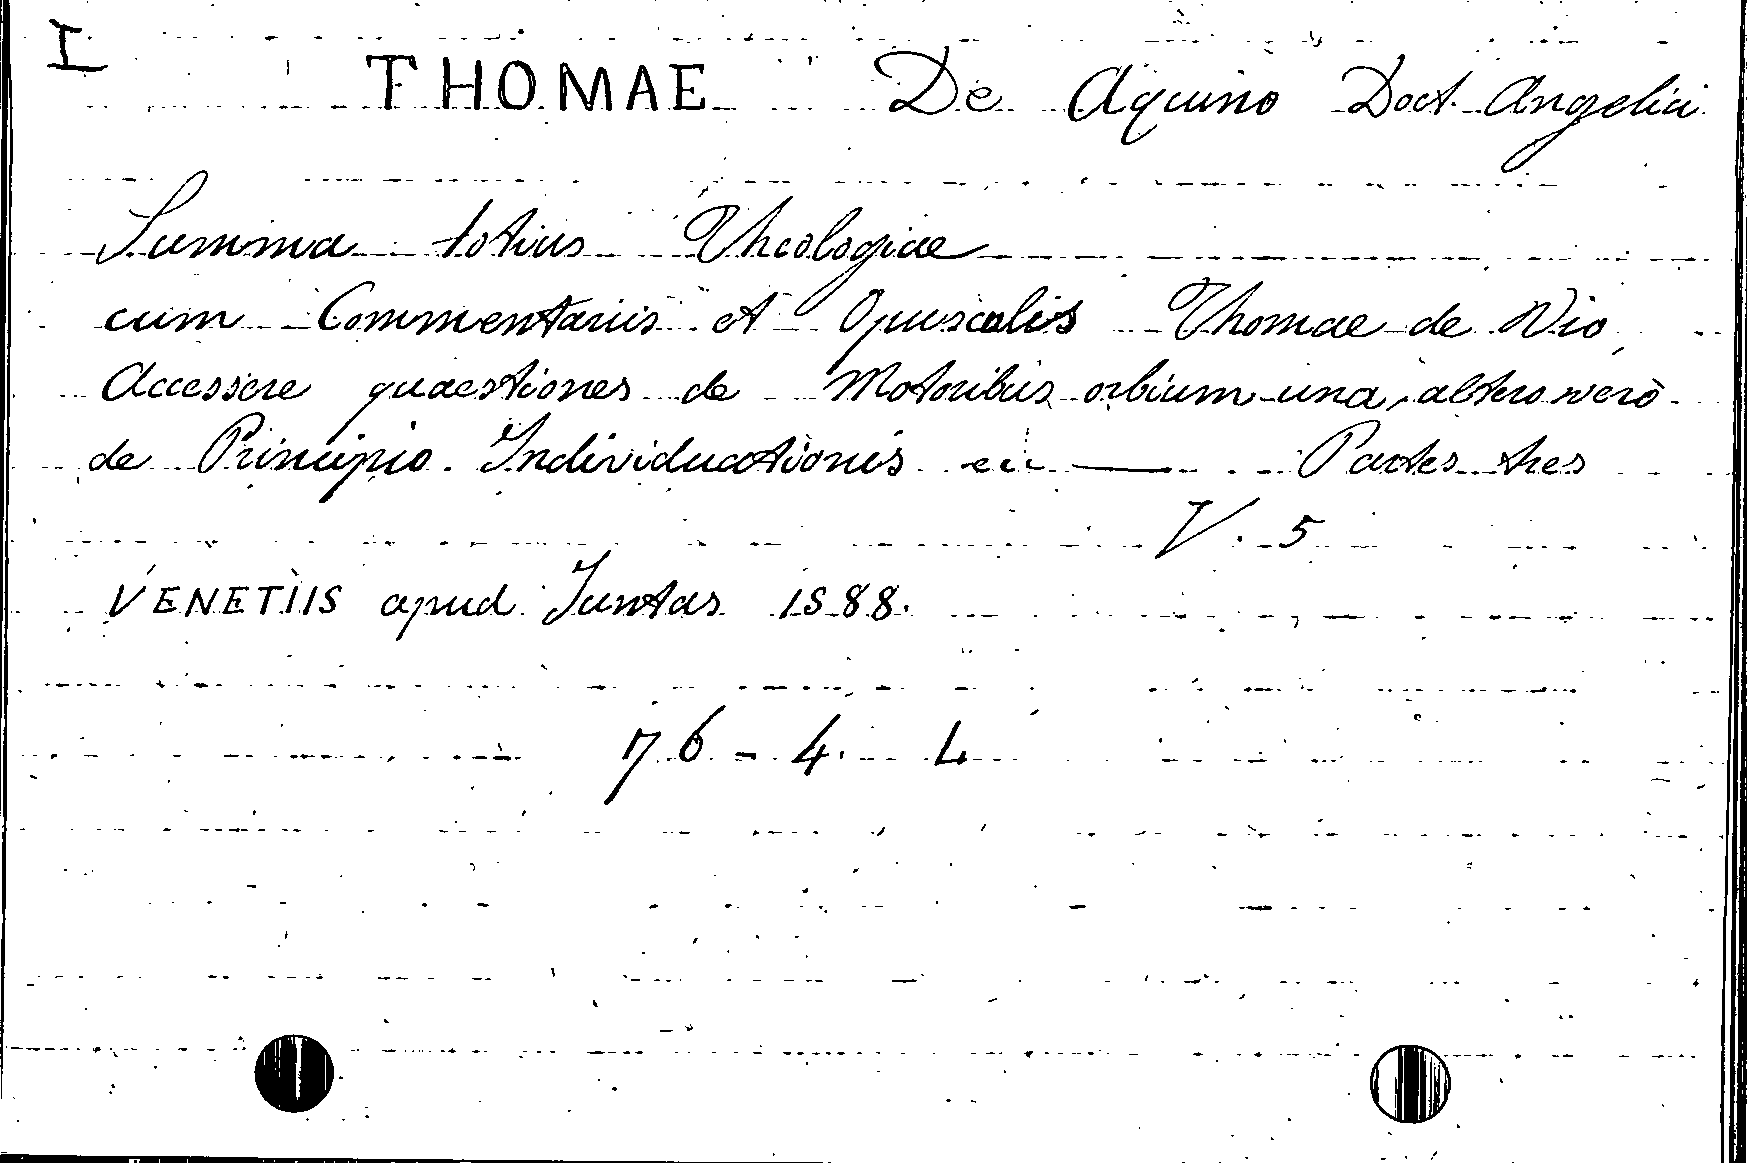 I
THOMAE De Aquino Doct. Angelici
Summa totius Theologiae
cum Commentariis et Opusculis Thomae de Vio,
Accessere quaestiones de Motoribus orbium una, altero verò
de Principio Individuationis ec — Partes tres
V. 5
VENETIIS apud Juntas 1588.
76 - 4. L